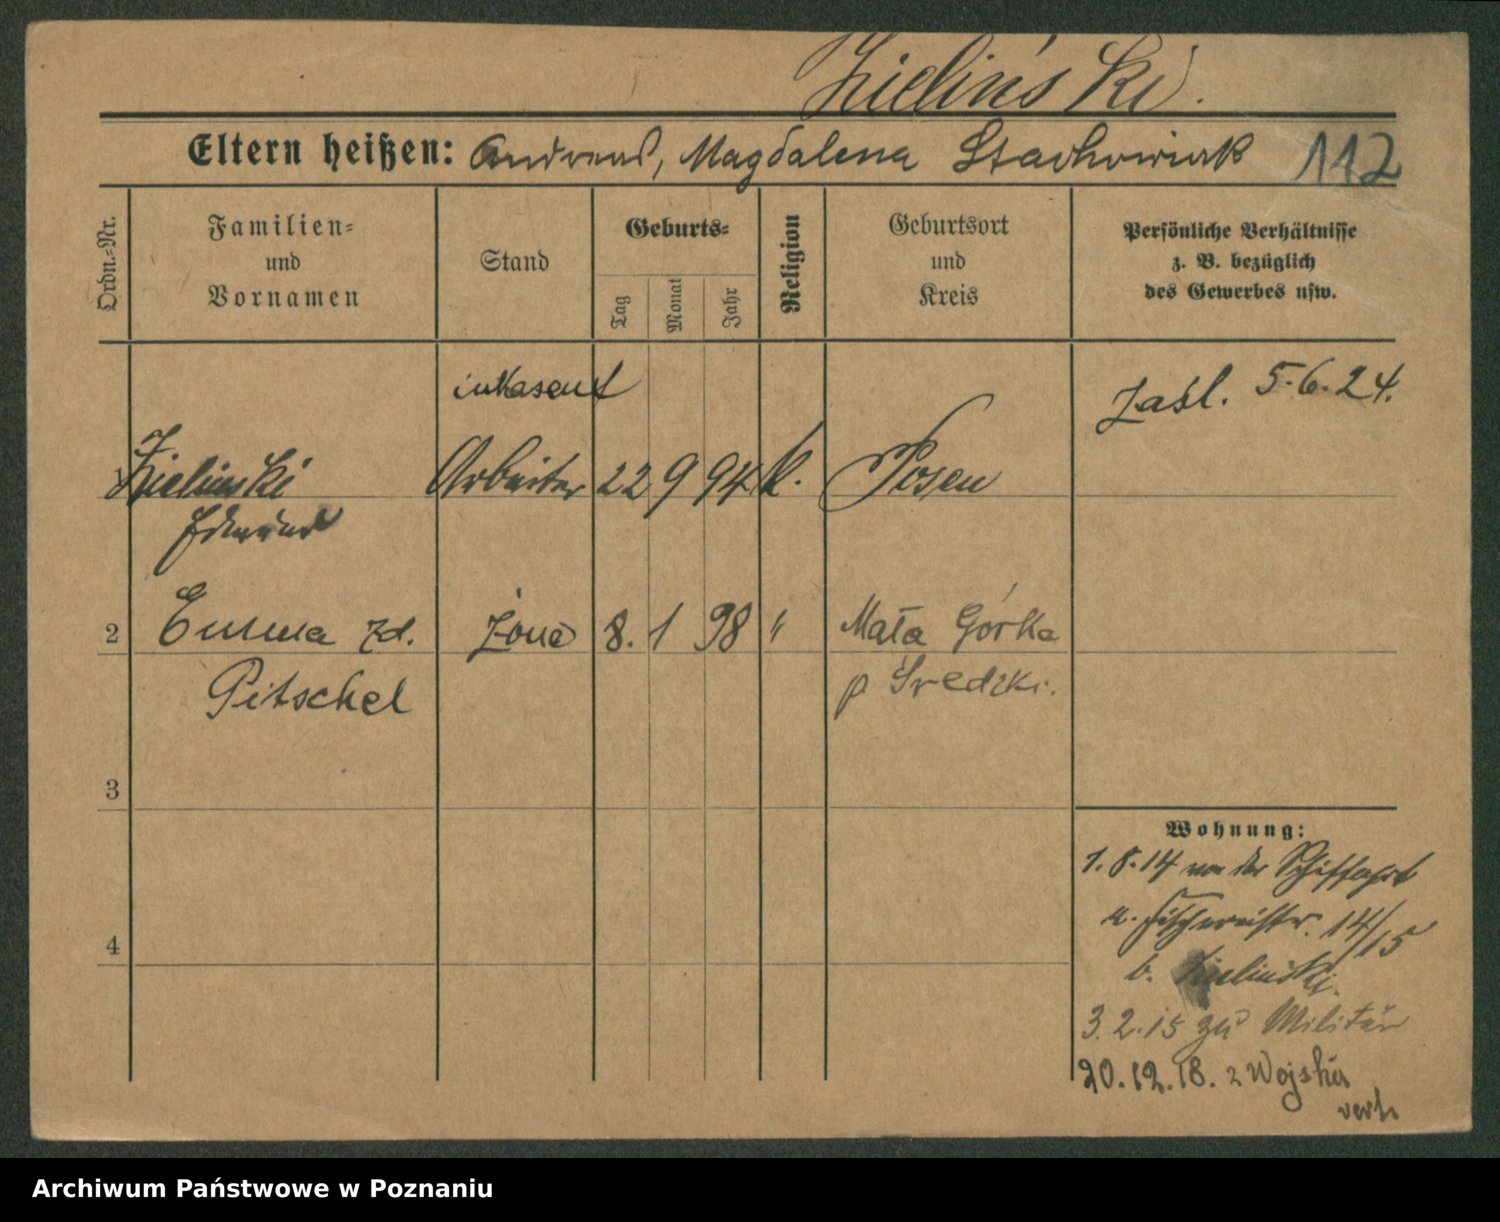 Zieliński.
Eltern heißen: Andreas, Magdalena Stachowiak 112
Ordn.-Nr.
Familien- und Vornamen
Stand
Geburts-
Tag
Monat
Jahr
Religion
Geburtsort und Kreis
Persönliche Verhältnisse
z. B. bezüglich
des Gewerbes usw.
inkasent
zaśl. 5.6.24.
1 Zielinski Arbeiter 22 9 94 k. Posen
Edmund
2 Emma zd. żona 8. 1 98 " Mała Górka
Pitschel p Średzki.
3
4
Wohnung:
1.8.14 von der Schiffahrt
a. Fischereistr. 14/15
b. Zielinski.
3.2.15 zu Militär
20.12.18. z Wojska
verte